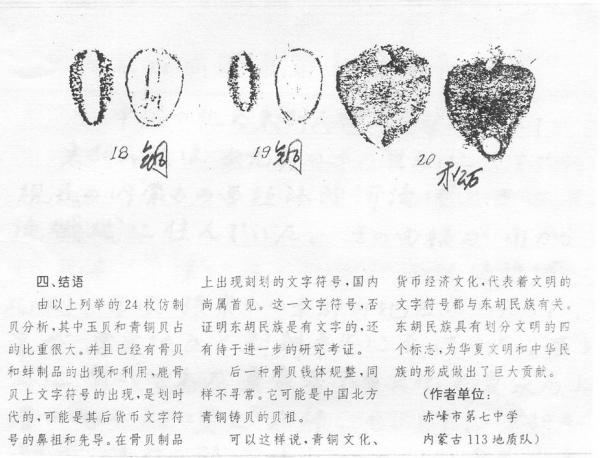 18 铜
19 铜
20
四、结语
由以上列举的24枚仿制
贝分析,其中玉贝和青铜贝占
的比重很大。并且已经有骨贝
和蚌制品的出现和利用,鹿骨
贝上文字符号的出现,是划时
代的,可能是其后货币文字符
号的鼻祖和先导。在骨贝制品
上出现刻划的文字符号,国内
尚属首见。这一文字符号,否
证明东胡民族是有文字的,还
有待于进一步的研究考证。
后一种骨贝钱体规整,同
样不寻常。它可能是中国北方
青铜铸贝的贝祖。
可以这样说,青铜文化、
货币经济文化,代表着文明的
文字符号都与东胡民族有关。
东胡民族具有划分文明的四
个标志,为华夏文明和中华民
族的形成做出了巨大贡献。
(作者单位:
赤峰市第七中学
内蒙古113地质队)